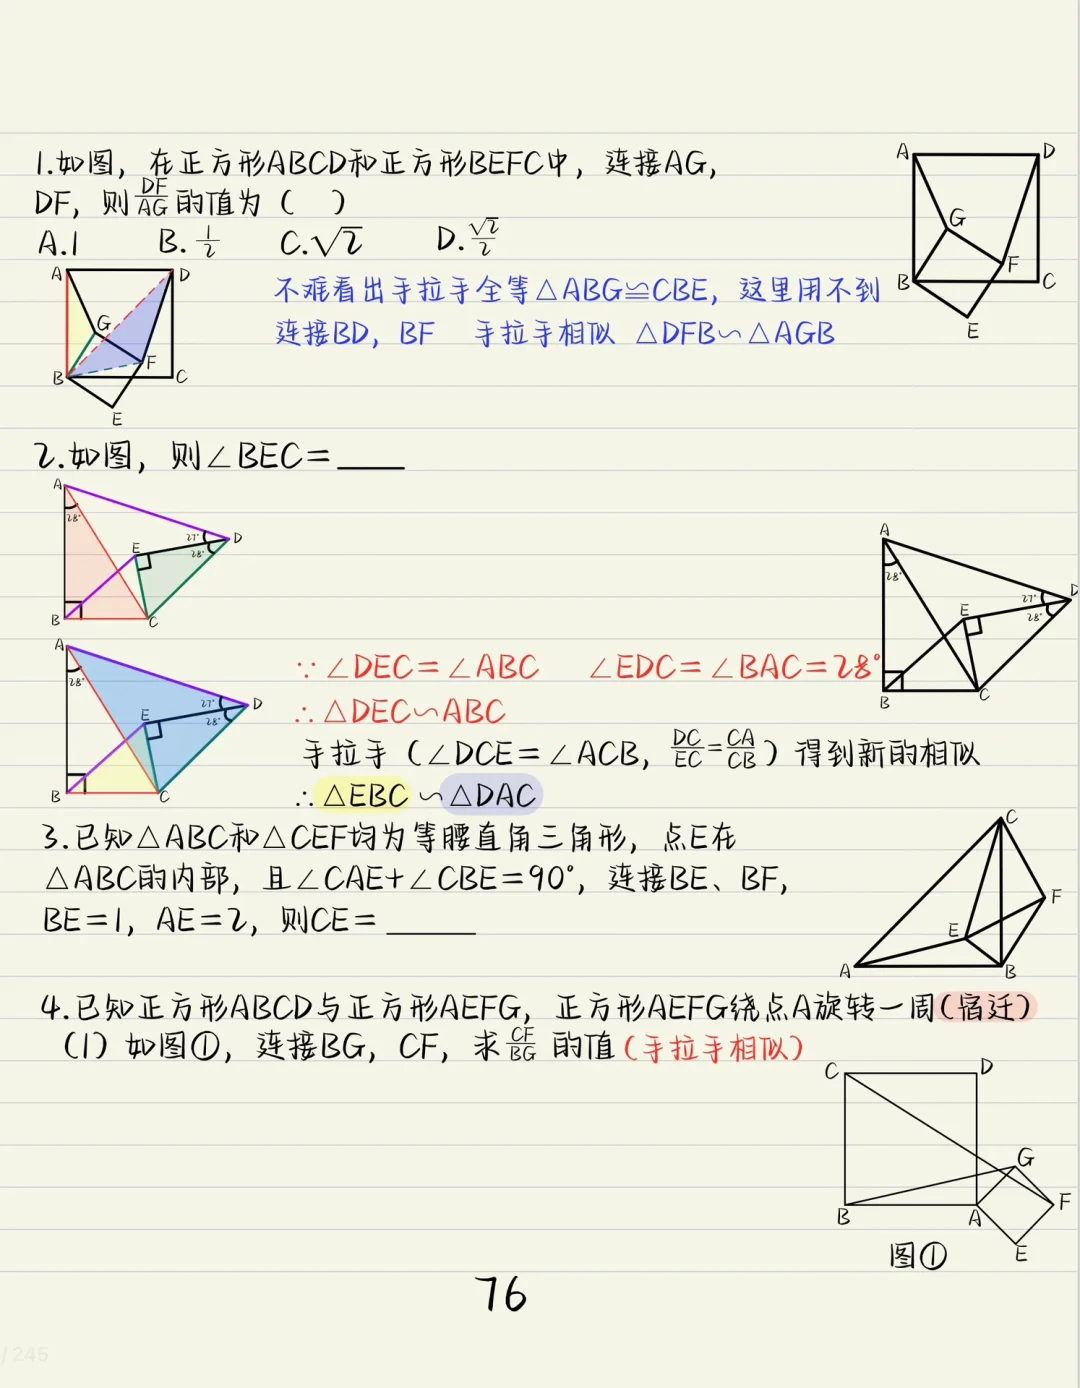 1.如图，在正方形ABCD和正方形BEFC中，连接AG，
DF，则DF/AG的值为（　）
A.1　B.1/2　C.√2　D.√2/2
A
D
G
F
B
C
E
A
D
G
F
B
C
E
不难看出手拉手全等△ABG≌CBE，这里用不到
连接BD，BF　手拉手相似 △DFB∽△AGB
2.如图，则∠BEC=____
A
28°
27°
D
28°
E
B
C
A
28°
27°
D
28°
E
B
C
A
28°
27°
D
28°
E
B
C
∵∠DEC=∠ABC　∠EDC=∠BAC=28°
∴△DEC∽ABC
手拉手（∠DCE=∠ACB，DC/EC=CA/CB）得到新的相似
∴△EBC∽△DAC
3.已知△ABC和△CEF均为等腰直角三角形，点E在
△ABC的内部，且∠CAE+∠CBE=90°，连接BE、BF，
BE=1，AE=2，则CE=____
C
F
E
A
B
4.已知正方形ABCD与正方形AEFG，正方形AEFG绕点A旋转一周(宿迁)
（1）如图①，连接BG，CF，求CF/BG的值（手拉手相似）
C
D
G
F
B
A
E
图①
76
/ 245